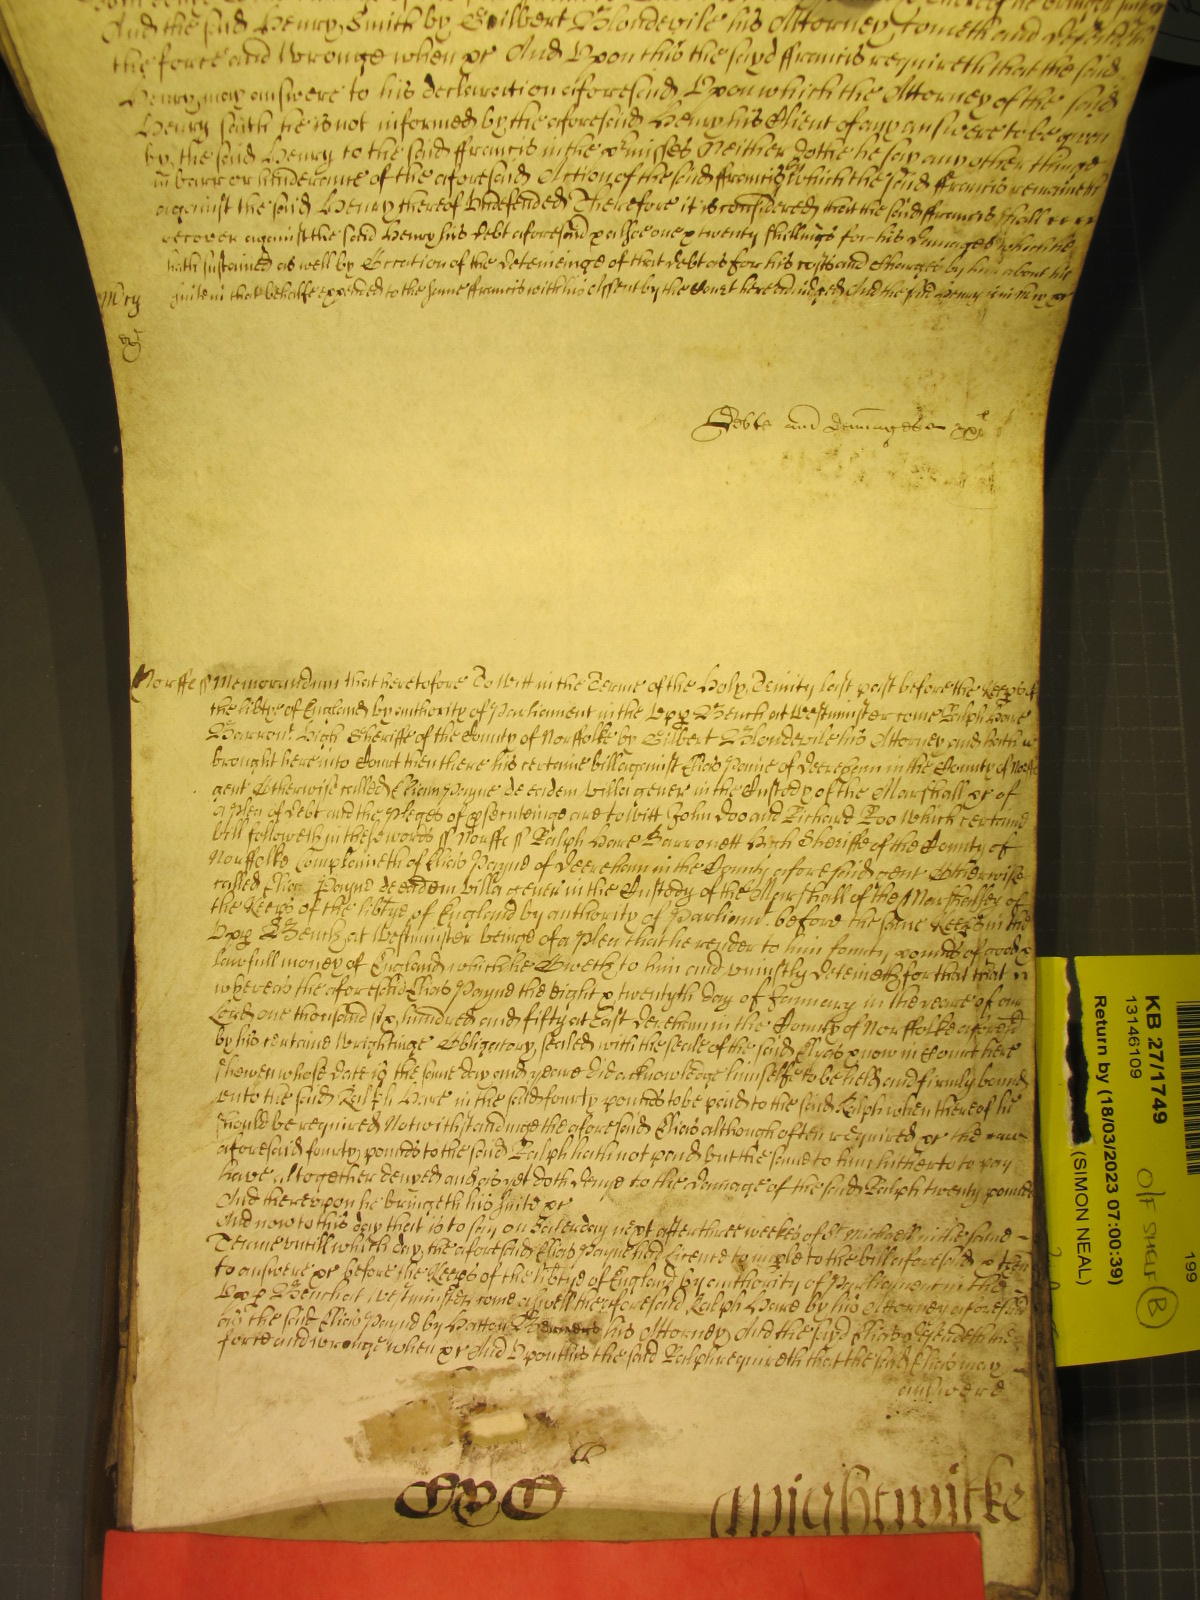 And the said Henry Smith by Gilbert Blondevile his Attorney cometh and defendeth
the force and wronge when &c And Upon this the sayd ffrancis requireth that the said
Henry may answere to his declaration aforesaid Upon which the Attorney of the said
Henry saith he is not informed by the aforesaid Henry his Client of any answere to be given
by the said Henry to the said ffrancis in the p'misses Neither dothe he say any other thinge
in barr or hinderance of the aforesaid Action of the said ffrancis by Which the said ffrancis remaineth
against the said Henry thereof Undefended Therefore it is considered that the said ffrancis shall
recover against the said Henry his debt aforesaid & alsoe one & twenty shillings for his damages which he
hath sustained as well by Occation of the deteineinge of that debt as for his costs and Charges by him about his
suite in that behalfe expended to the same ffrancis with his assent by the Court here adiudged And the said Henry in m'cy &c
M'cy
Debte and dammages
Norff ss Memorandum that heretofore To Witt in the Terme of the Holy Trinity last past before the Keep's of
the lib'tye of England by authority of Parliament in the Upp Bench at Westminster came Ralph Hare
Barron' High Sheriffe of the County of Norffolke by Gilbert Blondevile his Attorney and hath
brought here into Court then there his certaine bill against Elias Payne of in the County of Norff
gent Otherwise called Eliam Payne de eadem villa gener in the Custody of the Marshall &c of
a Plea of debt and the Pleges of p'secuteinge are to witt John Doo and Richard Roo Which certaine
bill followeth in these words ss Norff ss Ralph Hare Barronett High Sheriffe of the County of
Norffolke Complaineth of Elias Payne of in the County aforesaid gent Otherwise
called Payne de eadem villa gener in the Custody of the Marshall of the Marshalsey of
the Keep's of the lib'tye of England by authority of Parliam' before the same Keep's in the
Upp Bench at Westminster beinge of a Plea that he render to him fourty pounds of good &
lawfull money of England which he Oweth to him and uniustly deteineth for that that
whereas the aforesaid Elias Payne the eight & twentyth day of January in the yeare of our
Lord one thousand six hundred and fifty at East Dereham in the County of Norffolke aforesaid
by his certaine Wrightinge Obligatory sealed with the seale of the said Elyas & now in Court here
shewen whose date is the same day and yeare did acknowledge himselfe to be held and firmly bound
unto the said Ralph Hare in the said fourty pounds to be paid to the said Ralph when thereof he
should be required Notwithstandinge the aforesaid Elias although often required &c the
aforesaid fourty pounds to the said Ralph hath not paid but the same to him hitherto to pay
have altogether denyed and as yet doth denye to the damage of the said Ralph twenty pounds
And thereupon he bringeth his suite &c
And now to this day that is to say on Saterday next after three weekes of St Michaell in the same
Terme untill which day the aforesaid Elias Payne had licence to imple to the bill aforesaid & then
to answere &c before the Keep's of the lib'tye of England by authority of Parliament in the
Upp Bench at Westminster came aswell the aforesaid Ralph Hare by his Attorney aforesaid
as the said Elias Payne by Hatton his Attorney And the sayd Elias defendeth the
force and wronge when &c And Upon this the said Ralph requireth that the said Elias may
answere
Wightwicke
KB 27/1749
13146109
Return by (18/03/2023 07:00:39)
(SIMON NEAL)
199
B